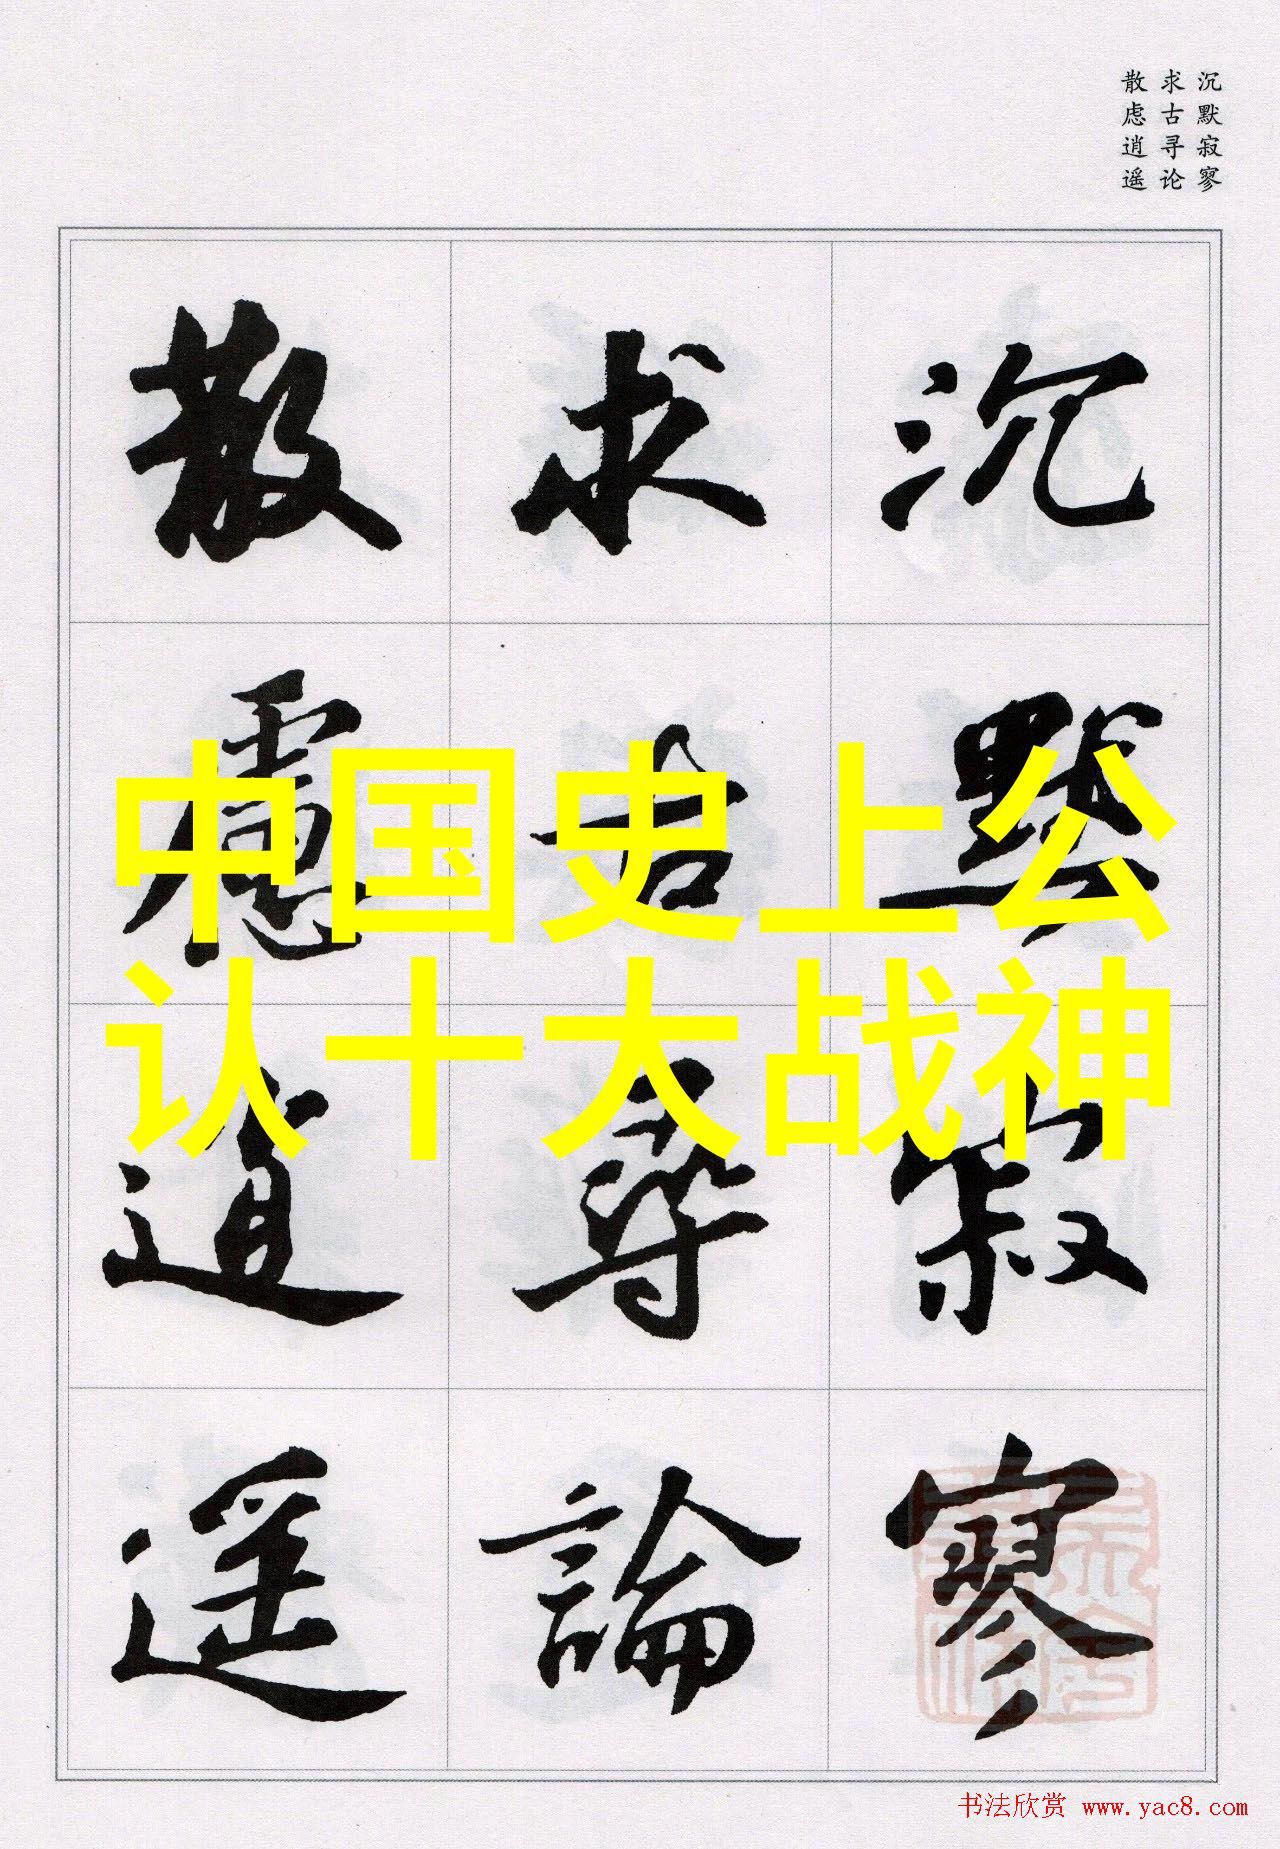 沉默寂寥
求古寻论
散虑逍遥
沉默寂寥
求古尋論
散慮逍遥
中国史上公
认十大战神
书法欣赏 www.yac8.com